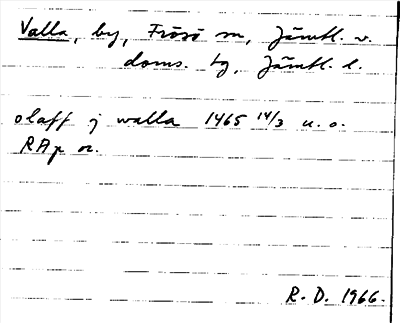 Valla, by, Frösö sn, Jämtl. v.
doms. tg, Jämtl. l.
olaff j walla 1465 14/3 u. o.
RAp or.
R. D. 1966.